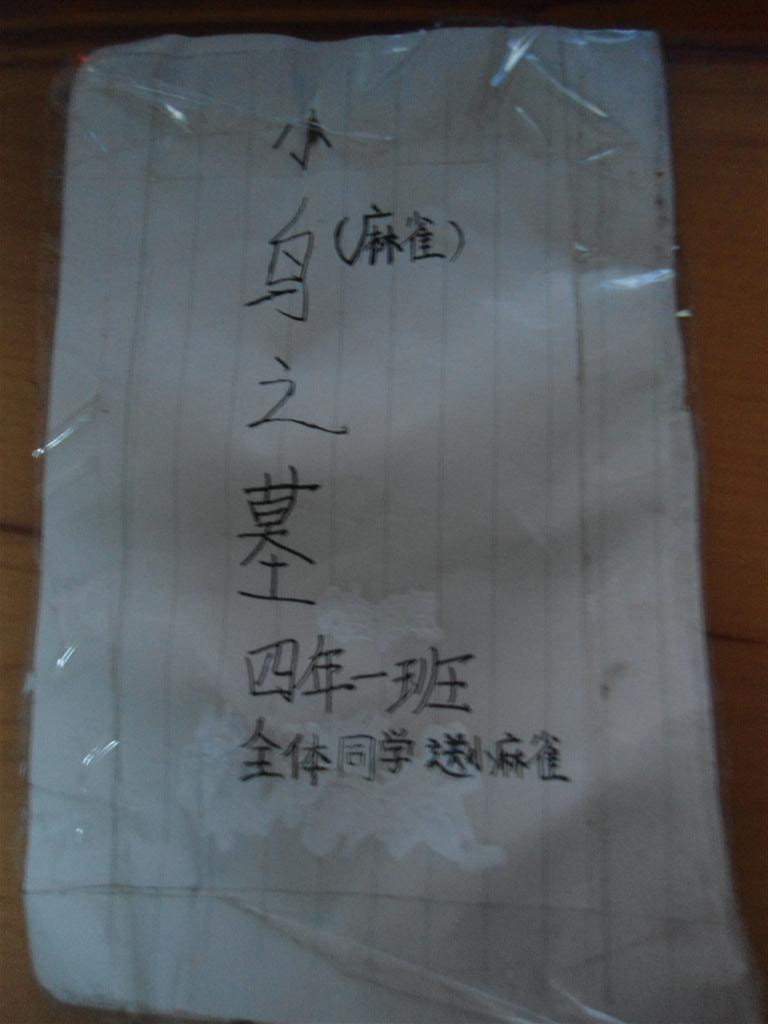 小鸟之墓
(麻雀)
四年一班
全体同学送小麻雀